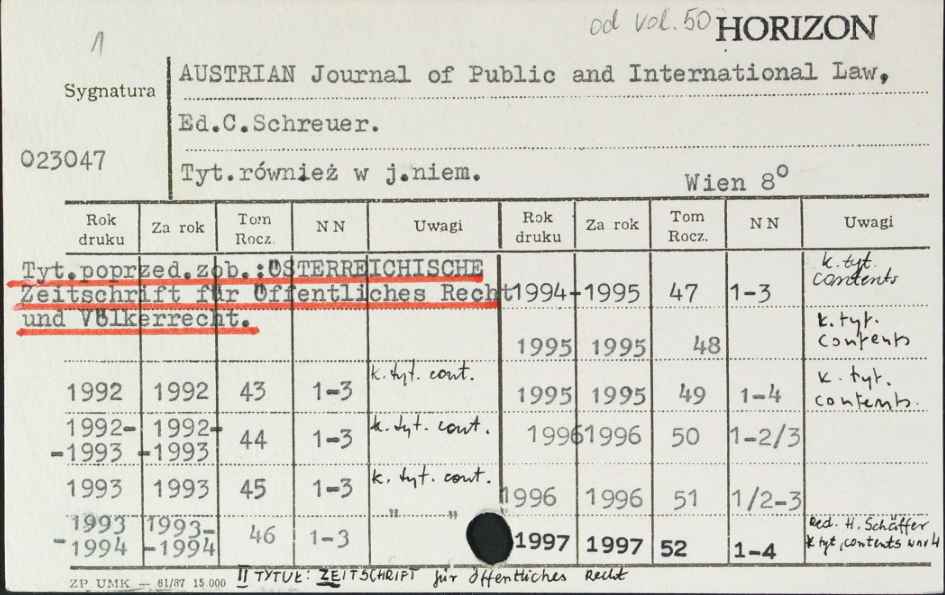 1
od vol. 50 HORIZON
Sygnatura
AUSTRIAN Journal of Public and International Law,
Ed.C.Schreuer.
023047
Tyt.również w j.niem.
Wien 8⁰
Rok druku Za rok Tom Rocz. N N Uwagi Rok druku Za rok Tom Rocz. N N Uwagi
Tyt.poprzed.zob.:ÖSTERREICHISCHE
Zeitschrift für Öffentliches Recht
und Völkerrecht.
1994-1995 47 1-3 k. tyt. contents
1995 1995 48 k. tyt. contents
1992 1992 43 1-3 k. tyt. cont.
1995 1995 49 1-4 k. tyt. contents.
1992-1993 1992-1993 44 1-3 k. tyt. cont.
1996 1996 50 1-2/3
1993 1993 45 1-3 k. tyt. cont.
1996 1996 51 1/2-3
1993-1994 1993-1994 46 1-3 " "
1997 1997 52 1-4 Red. H. Schäffer k tyt, contents w nr 4
ZP UMK — 61/87 15.000
II TYTUŁ: ZEITSCHRIFT für öffentliches Recht